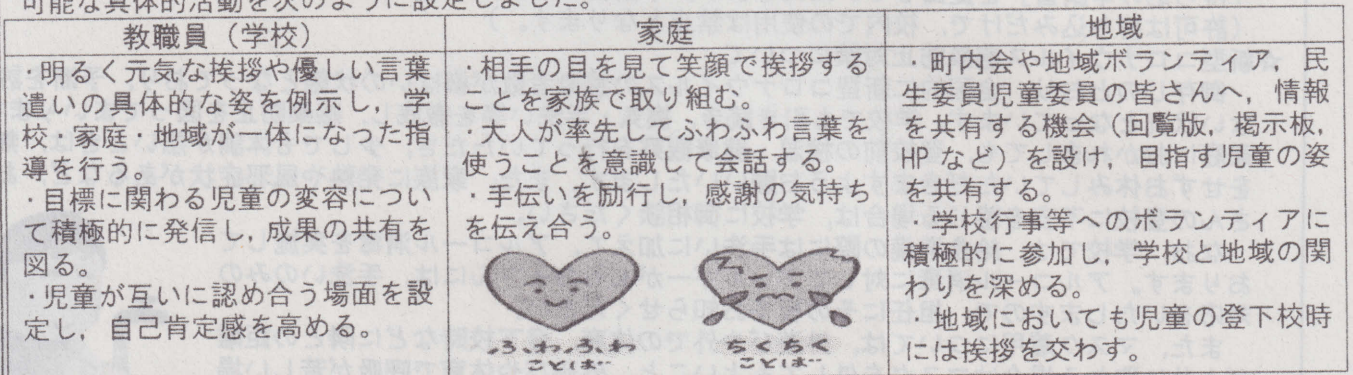 可能な具体的活動を次のように設定しました。
教職員（学校）
・明るく元気な挨拶や優しい言葉
遣いの具体的な姿を例示し，学
校・家庭・地域が一体になった指
導を行う。
・目標に関わる児童の変容につい
て積極的に発信し，成果の共有を
図る。
・児童が互いに認め合う場面を設
定し，自己肯定感を高める。
家庭
・相手の目を見て笑顔で挨拶する
ことを家族で取り組む。
・大人が率先してふわふわ言葉を
使うことを意識して会話する。
・手伝いを励行し，感謝の気持ち
を伝え合う。
ふわふわ
ことば
ちくちく
ことば
地域
・町内会や地域ボランティア，民
生委員児童委員の皆さんへ，情報
を共有する機会（回覧版，掲示板，
HPなど）を設け，目指す児童の姿
を共有する。
・学校行事等へのボランティアに
積極的に参加し，学校と地域の関
わりを深める。
・地域においても児童の登下校時
には挨拶を交わす。